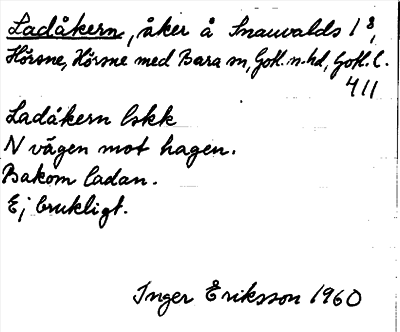 Ladåkern, åker å Snauvalds 1⁸,
Hörsne, Hörsne med Bara sn, Gotl. n. hd, Gotl. l.
411
Ladåkern lskk
N vägen mot hagen.
Bakom ladan.
Ej brukligt.
Inger Eriksson 1960